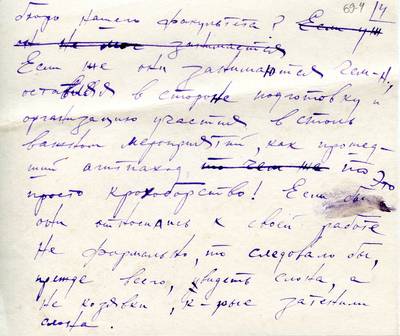 бюро нашего факультета? Если уж
он не мог заниматься
Если же они занимаются чем-н,
оставляя в стороне подготовку и
организацию участия в столь
важном мероприятии, как прошед-
ший агитпоход, то чем же то это
просто крохоборство! Если бы
они относились к своей работе
не формально, то следовало бы,
прежде всего, увидеть слона, а
не козявки, к-рые затенили
слона.